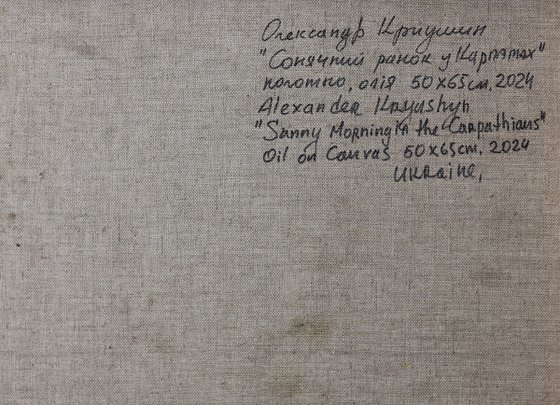 Олександр Кріушин
"Сонячний ранок у Карпатах"
полотно, олія 50х65см, 2024
Alexander Kryushyn
"Sunny Morning in the Carpathians"
Oil on Canvas 50x65cm. 2024
Ukraine,